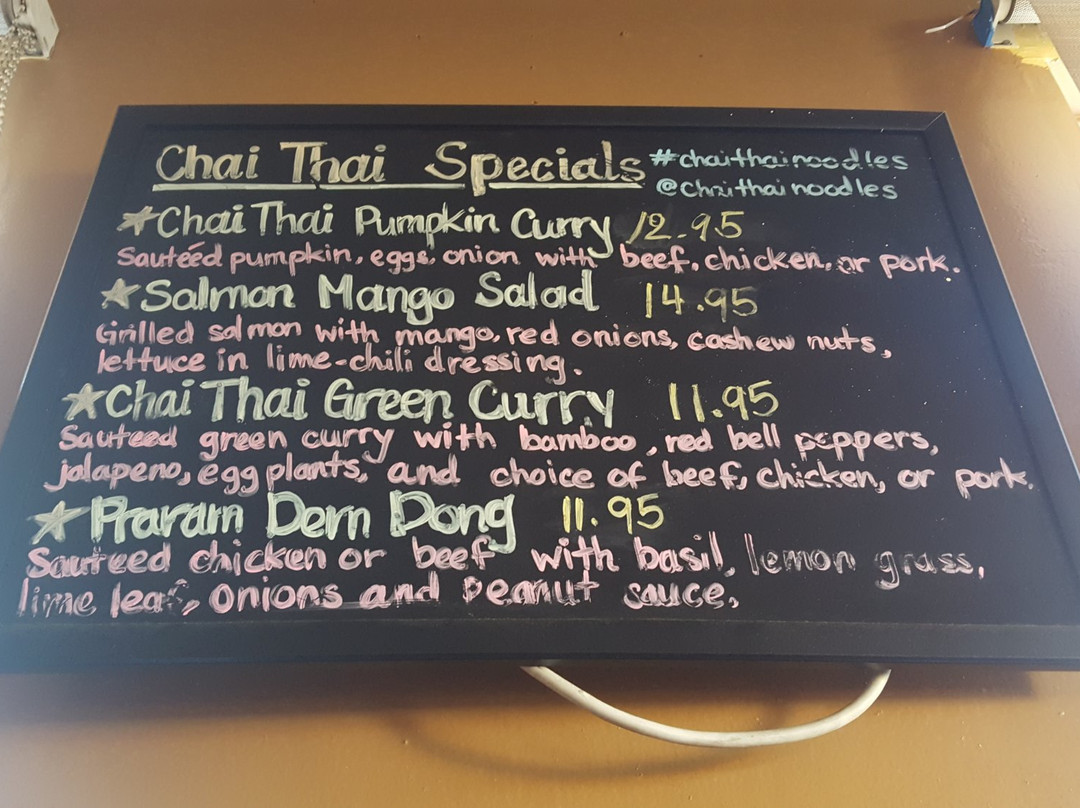 Chai Thai Specials #chaithainoodles
@chaithainoodles
Chai Thai Pumpkin Curry 12.95
Sauteéd pumpkin, eggs, onion with beef, chicken, or pork.
Salmon Mango Salad 14.95
Grilled salmon with mango, red onions, cashew nuts,
lettuce in lime-chili dressing.
Chai Thai Green Curry 11.95
Sauteed green curry with bamboo, red bell peppers,
jalapeno, eggplants, and choice of beef, chicken, or pork.
Praram Dern Dong 11.95
Sauteed chicken or beef with basil, lemon grass,
lime leaf, onions and peanut sauce.